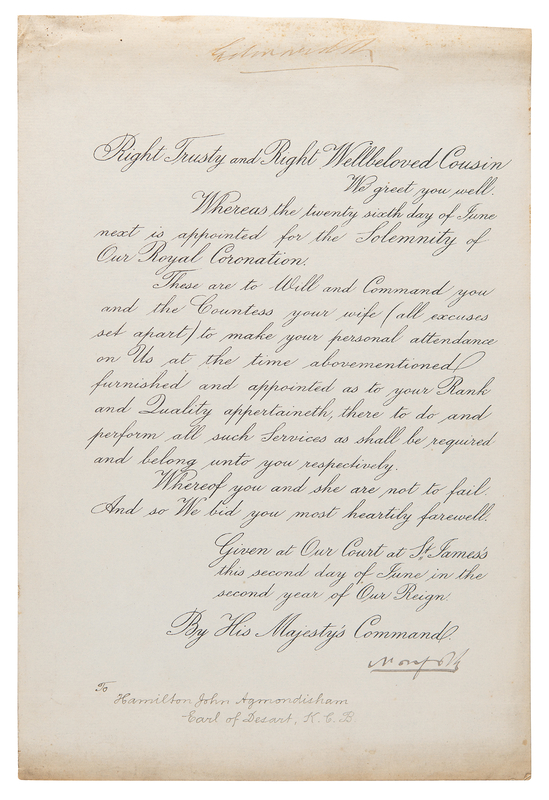 Right Trusty and Right Wellbeloved Cousin
We greet you well.
Whereas the twenty sixth day of June
next is appointed for the Solemnity of
Our Royal Coronation.
These are to Will and Command you
and the Countess your wife (all excuses
set apart) to make your personal attendance
on Us at the time abovementioned
furnished and appointed as to your Rank
and Quality appertaineth, there to do and
perform all such Services as shall be required
and belong unto you respectively.
Whereof you and she are not to fail.
And so We bid you most heartily farewell.
Given at Our Court at St. James's
this second day of June in the
second year of Our Reign.
By His Majesty's Command.
Norfolk
To
Hamilton John Agmondisham
Earl of Desart, K.C.B